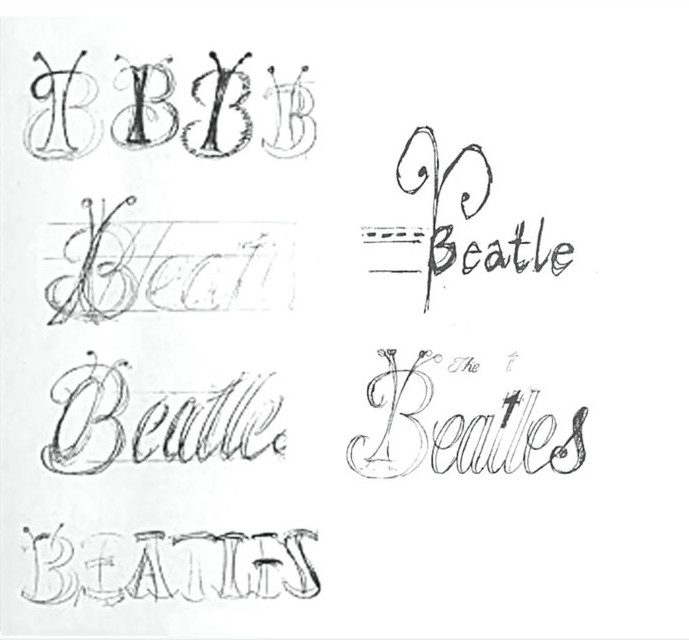 B B B B
Beatl
Beatles
BEATLES
Beatle
The t
Beatles